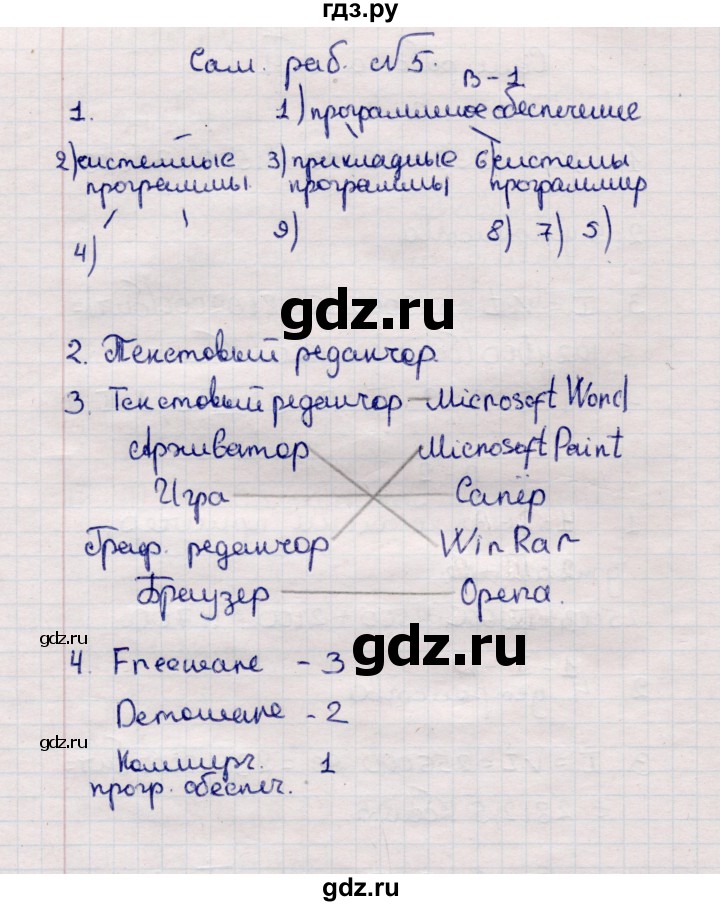 гдз.ру
Сам. раб. №5.
В-1
1. 1) программное обеспечение
2) системные программы 3) прикладные программы 6) системы программир
4) 9) 8) 7) 5)
gdz.ru
2. Текстовый редактор.
3. Текстовый редактор - Microsoft Word
Архиватор Microsoft Paint
Игра Сапёр
Граф. редактор WinRar
Браузер Opera.
gdz.ru
gdz.ru
4. Freeware - 3
Demoware - 2
gdz.ru
Коммерч. 1
прогр. обеспеч.
gdz.ru